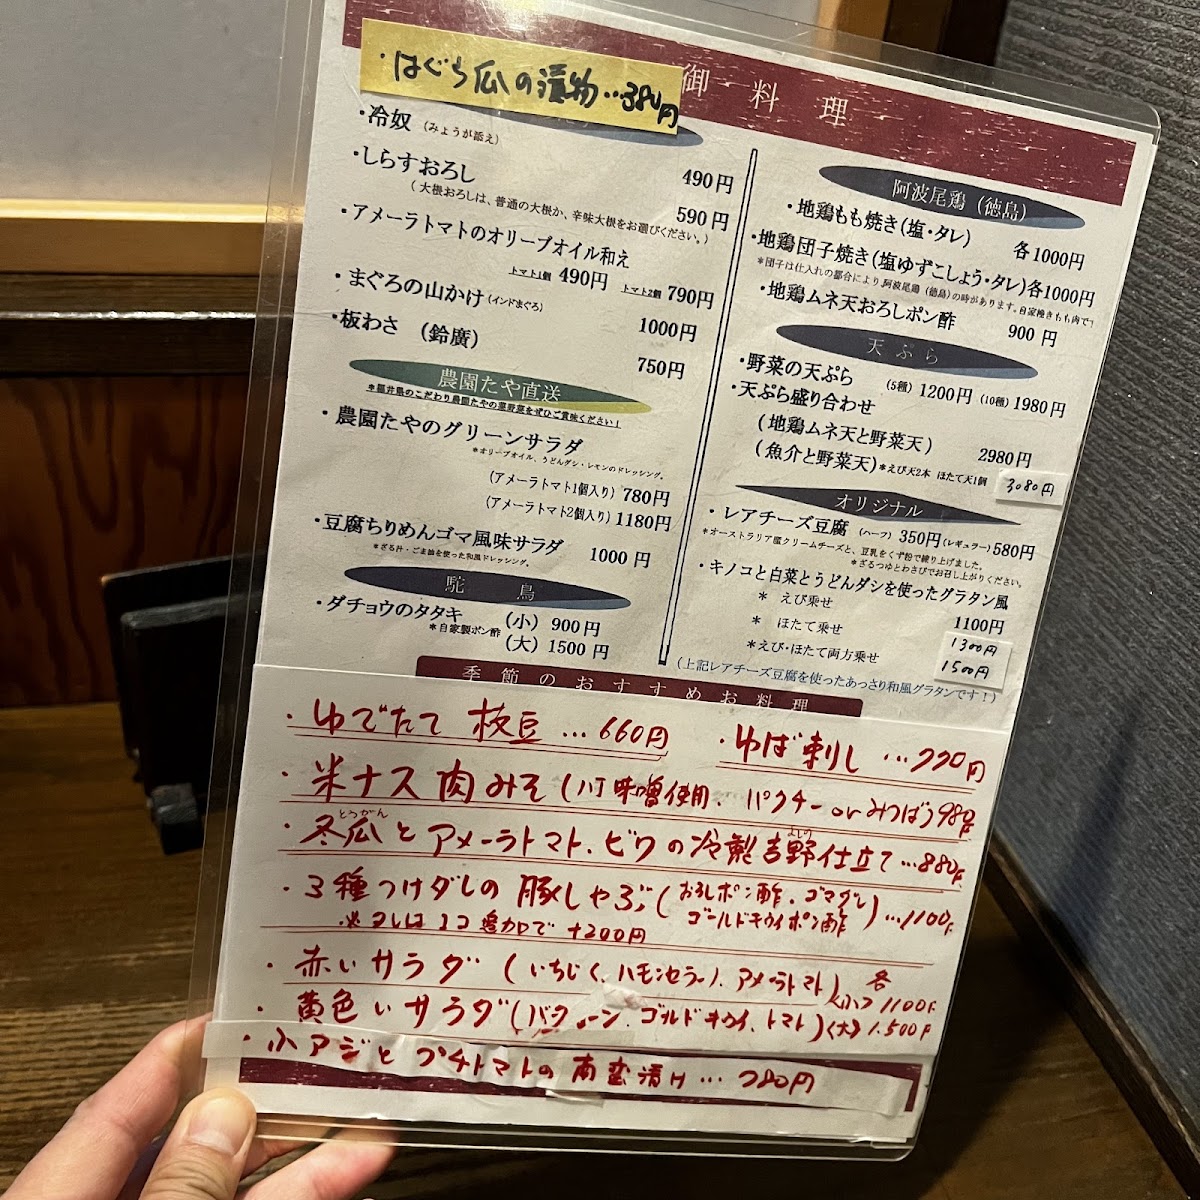 御料理
・はぐら瓜の漬物…380円
・冷奴(みょうが添え)
490円
・しらすおろし
590円
(大根おろしは、普通の大根か、辛味大根をお選びください。)
・アメーラトマトのオリーブオイル和え
トマト1個 490円 トマト2個 790円
・まぐろの山かけ(インドまぐろ)
1000円
・板わさ (鈴廣)
750円
農園たや直送
*福井県のこだわり農園たやの葉野菜をぜひご賞味ください!
・農園たやのグリーンサラダ
*オリーブオイル、うどんダシ・レモンのドレッシング。
(アメーラトマト1個入り) 780円
(アメーラトマト2個入り) 1180円
・豆腐ちりめんゴマ風味サラダ
1000 円
*ざる汁・ごま油を使った和風ドレッシング。
駝鳥
・ダチョウのタタキ (小) 900円
*自家製ポン酢 (大) 1500 円
阿波尾鶏(徳島)
・地鶏もも焼き(塩・タレ)
各1000円
・地鶏団子焼き(塩ゆずこしょう・タレ)各1000円
*団子は仕入れの都合により、阿波尾鶏(徳島)の時があります。自家挽きもも肉で
・地鶏ムネ天おろしポン酢
900 円
天ぷら
・野菜の天ぷら (5種) 1200円 (10種) 1980円
・天ぷら盛り合わせ
(地鶏ムネ天と野菜天) 2980円
(魚介と野菜天)*えび天2本 ほたて天1個 3080円
オリジナル
・レアチーズ豆腐 (ハーフ) 350円(レギュラー)580円
*オーストラリア産クリームチーズと、豆乳をくず粉で練り上げました。
*ざるつゆとわさびでお召し上がりください。
・キノコと白菜とうどんダシを使ったグラタン風
1100円
* えび乗せ
* ほたて乗せ 1300円
*えび・ほたて両方乗せ 1500円
(上記レアチーズ豆腐を使ったあっさり和風グラタンです!)
季節のおすすめお料理
・ゆでたて 枝豆 …660円
・ゆば刺し …770円
・米ナス肉みそ(八丁味噌使用、パクチーorみつば)980円
・冬瓜とアメーラトマト、ビワの冷製吉野仕立て…880円
とうがん
よしの
・3種つけダレの豚しゃぶ(おろしポン酢、ゴマダレ
ゴールドキウイポン酢)…1100円
※タレは1コ追加で +200円
・赤いサラダ (いちじく、ハモンセラーノ、アメーラトマト) 各
(小) 1100円
・黄色いサラダ(バターコーン、ゴールドキウイ、トマト)(大) 1.500円
・小アジとプチトマトの南蛮漬け…780円